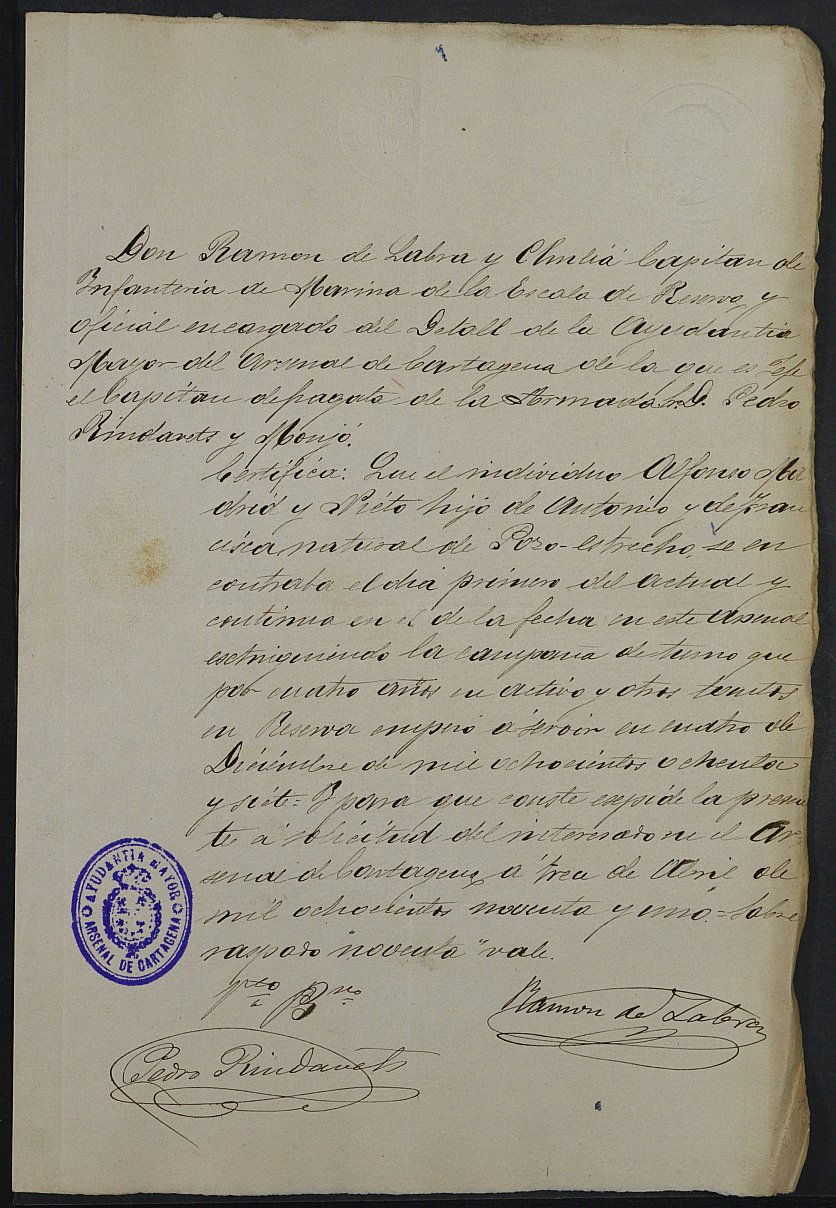 Don Ramon de Labra y Chuliá Capitan de
Infanteria de Marina de la Escala de Reserva y
oficial encargado del Detall de la Ayudantia
Mayor del Arsenal de Cartagena de la que es Jefe
el Capitan de fragata de la Armada Sr. D. Pedro
Rindavets y Monjó.
Certifica: Que el individuo Alfonso Ma
drid y Nieto hijo de Antonio y de Fran
cisca natural de Pozo-Estrecho, se en
contraba el dia primero del actual y
continua en el de la fecha en este Arsenal
extinguiendo la campaña de turno que
por cuatro años en activo y otros tantos
en Reserva empezó a servir en cuatro de
Diciembre de mil ochocientos ochenta
y siete = Y para que conste expide la presen
te á solicitud del interesado en el Ar-
senal de Cartagena á tres de Abril de
mil ochocientos noventa y uno. = Sobre
raspado "noventa" vale.
Vto Bno
Ramon de Labra
Pedro Rindavets
AYUDANTIA MAYOR
ARSENAL DE CARTAGENA